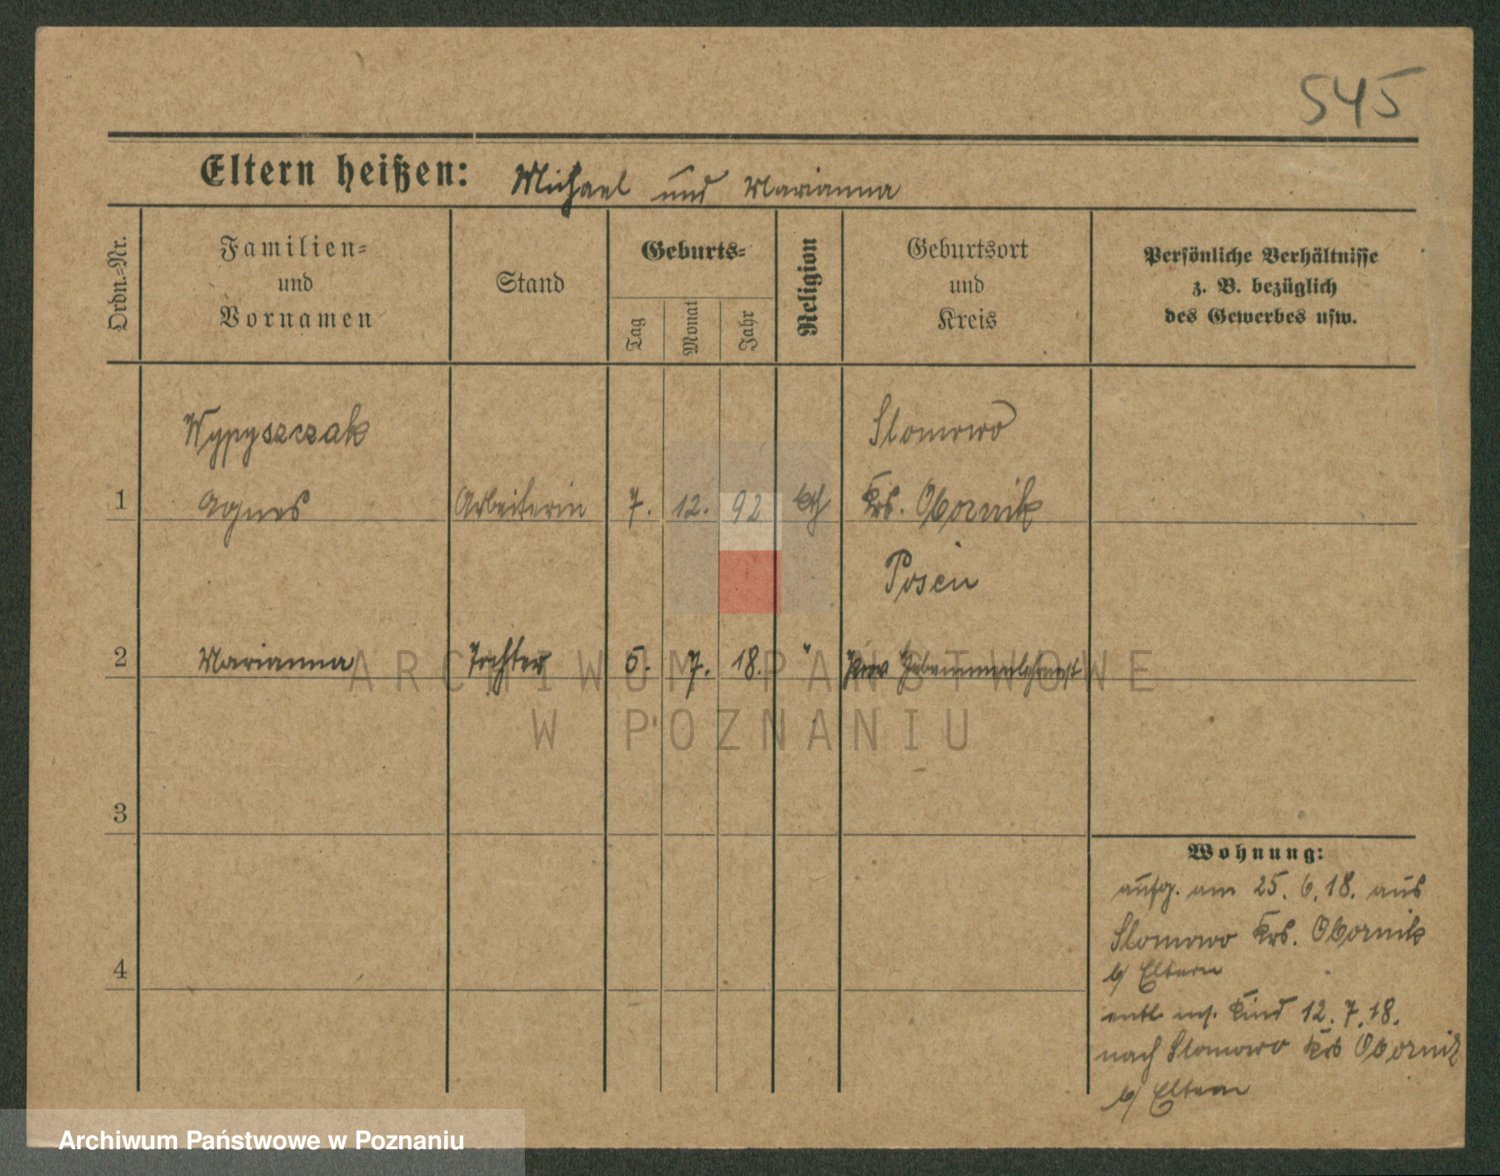 545
Eltern heißen: Michael und Marianna
Ordn.-Nr.
Familien-
und
Vornamen
Stand
Geburts-
Tag
Monat
Jahr
Religion
Geburtsort
und
Kreis
Persönliche Verhältnisse
z. B. bezüglich
des Gewerbes usw.
Wypyszczak Slomowo
1 Agnes Arbeiterin 7. 12. 92 kth Krs. Obornik
Posen
2 Marianna Tochter 5. 7. 18. " Prov Hebammenlehranst
ARCHIWUM PAŃSTWOWE
W POZNANIU
3
4
Wohnung:
aufg. am 25. 6. 18. aus
Slomowo Krs. Obornik
b/ Eltern
entl. m. Kind 12. 7. 18.
nach Slomowo Krs Obornik
b/ Eltern
Archiwum Państwowe w Poznaniu